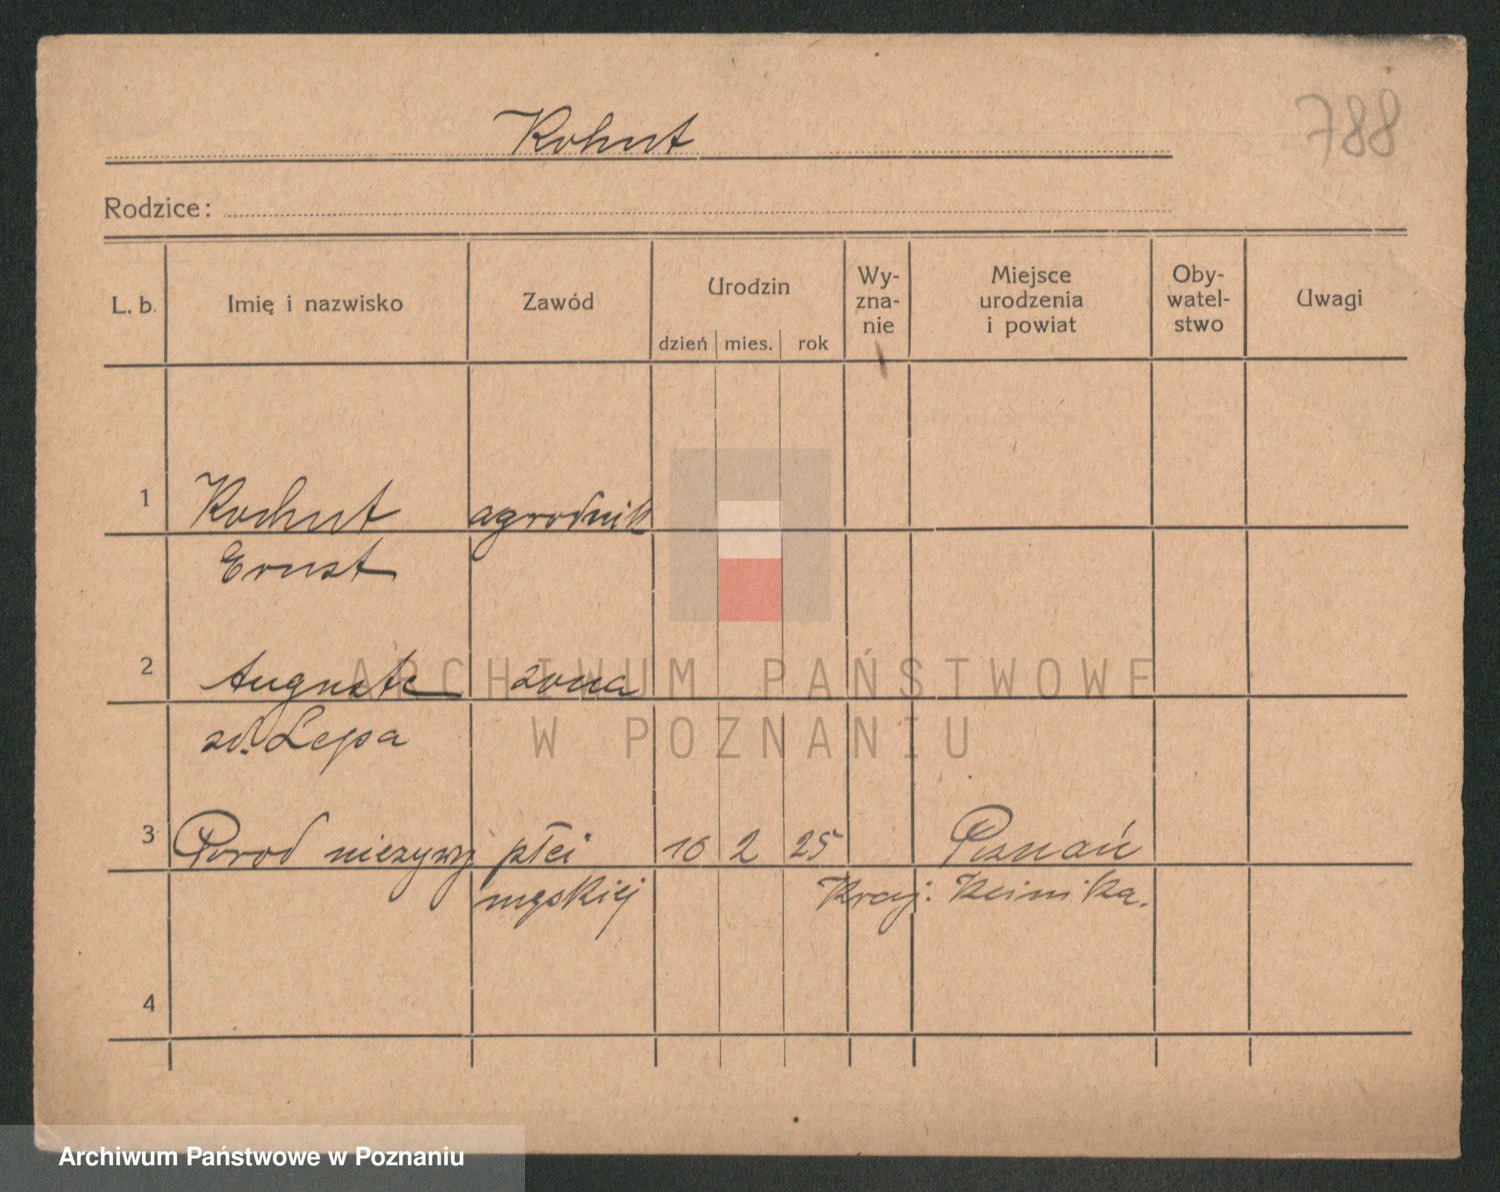 Kohut
788
Rodzice:
L. b. Imię i nazwisko Zawód Urodzin dzień mies. rok Wy-zna-nie Miejsce urodzenia i powiat Oby-watel-stwo Uwagi
1 Kohut agrodnik
Ernst
2 Auguste żona
ARCHIWUM PAŃSTWOWE
zd. Lepa
W POZNANIU
3 Poród nieżywy płci 10 2 25 Poznań
męskiej Kraj.
4
Archiwum Państwowe w Poznaniu